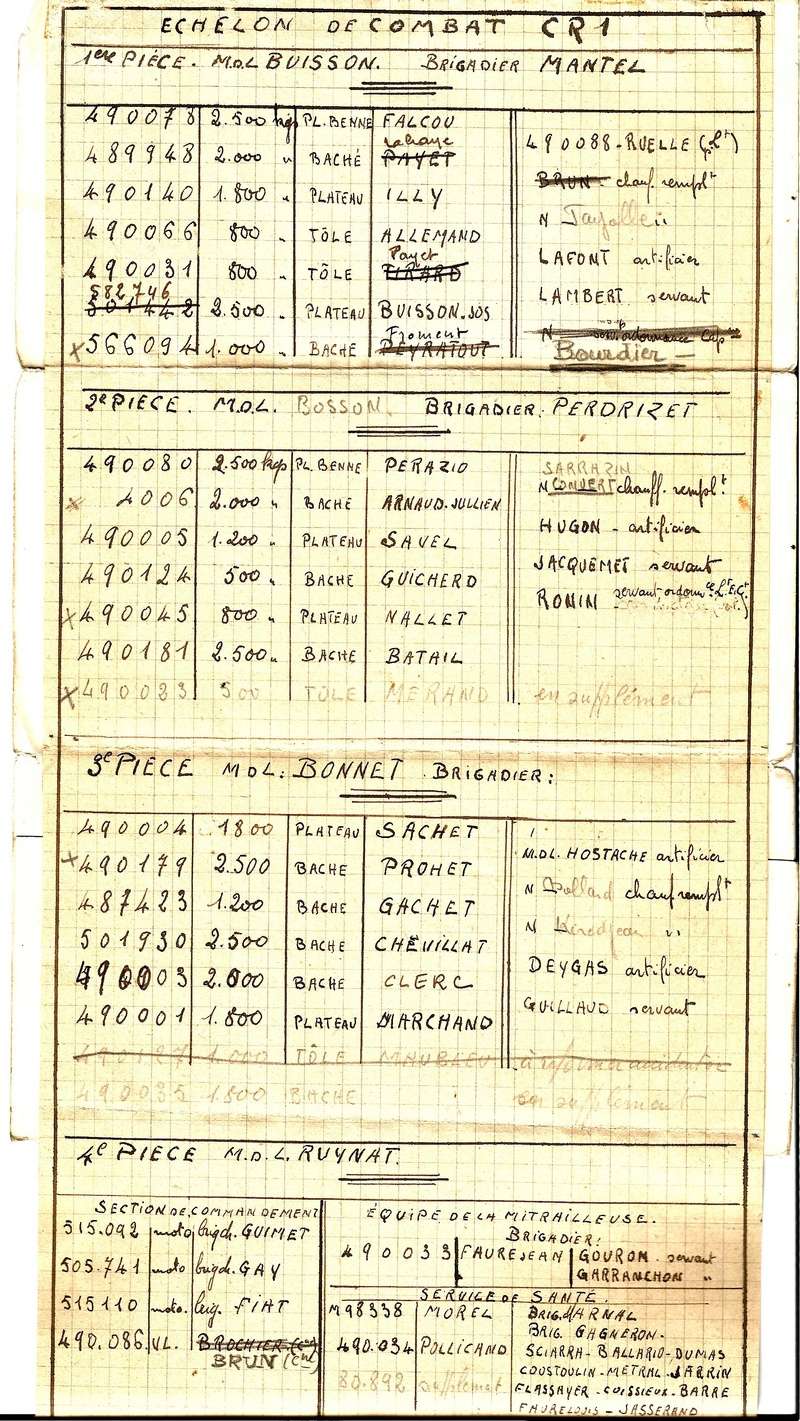 ECHELON DE COMBAT CR1
1ere PIÈCE. M.D.L BUISSON. BRIGADIER MANTEL
490078 2.500 kgs PL. BENNE FALCOU
490088-RUELLE
489948 2.000 " BACHÉ PAYET
BRUN - chauf. remplt
490140 1.800 " PLATEAU ILLY
N
490066 800 " TÔLE ALLEMAND
LAFONT artificier
Payet
490031 800 " TÔLE TIRARD
LAMBERT servant
582746
501442 2.500 " PLATEAU BUISSON.JOS
Froment
x 566094 1.000 " BACHE PEYRATOUT
N
Bourdier -
2e PIECE. M.D.L. BOSSON. BRIGADIER: PERDRIZET
490080 2.500 kgs PL. BENNE PERAZIO
SARRAZIN
N CONVERT chauff. remplt.
x 4006 2.000 " BACHE ARNAUD.JULLIEN
HUGON - artificier
490005 1.200 " PLATEAU SAVEL
JACQUEMET servant
490124 500 " BACHE GUICHERD
RONIN servant
x 490045 800 " PLATEAU NALLET
490181 2.500 " BACHE BATAIL
x 490023 500 TÔLE MERAND en supplément
3e PIECE MDL: BONNET BRIGADIER:
490004 1800 PLATEAU SACHET
M.DL. HOSTACHE artificier
x 490179 2.500 BACHE PROHET
N Bollard chauf remplt
487423 1.200 BACHE GACHET
N "
501930 2.500 BACHE CHEVILLAT
DEYGAS artificier
490003 2.000 BACHE CLERC
GUILLAUD servant
490001 1.800 PLATEAU MARCHAND
490127 1.000 TÔLE
490035 1.500 BACHE en supplément
4e PIECE M.D.L. RUYNAT.
SECTION DE COMMANDEMENT
515.092 moto brigch. GUIMET
505.741 moto brigch. GAY
515110 moto. brig. FIAT
490.086. VL. BROCHIER (Cne)
BRUN (Cne)
ÉQUIPE DE LA MITRAILLEUSE.
BRIGADIER:
490033 FAUREJEAN GOURON. servant
GARRANCHON "
SERVICE DE SANTÉ.
M98338 MOREL BRIG. d'ARNAL
BRIG. GAGNERON-
490.034 POLLICAND SCIARRA-BALLARIO-DUMAS
COUSTOULIN-METRAL-JARRIN
80.892 supplément FLASSAYER-CUISSIEUX-BARRE
FAURELOUIS-JASSERAND